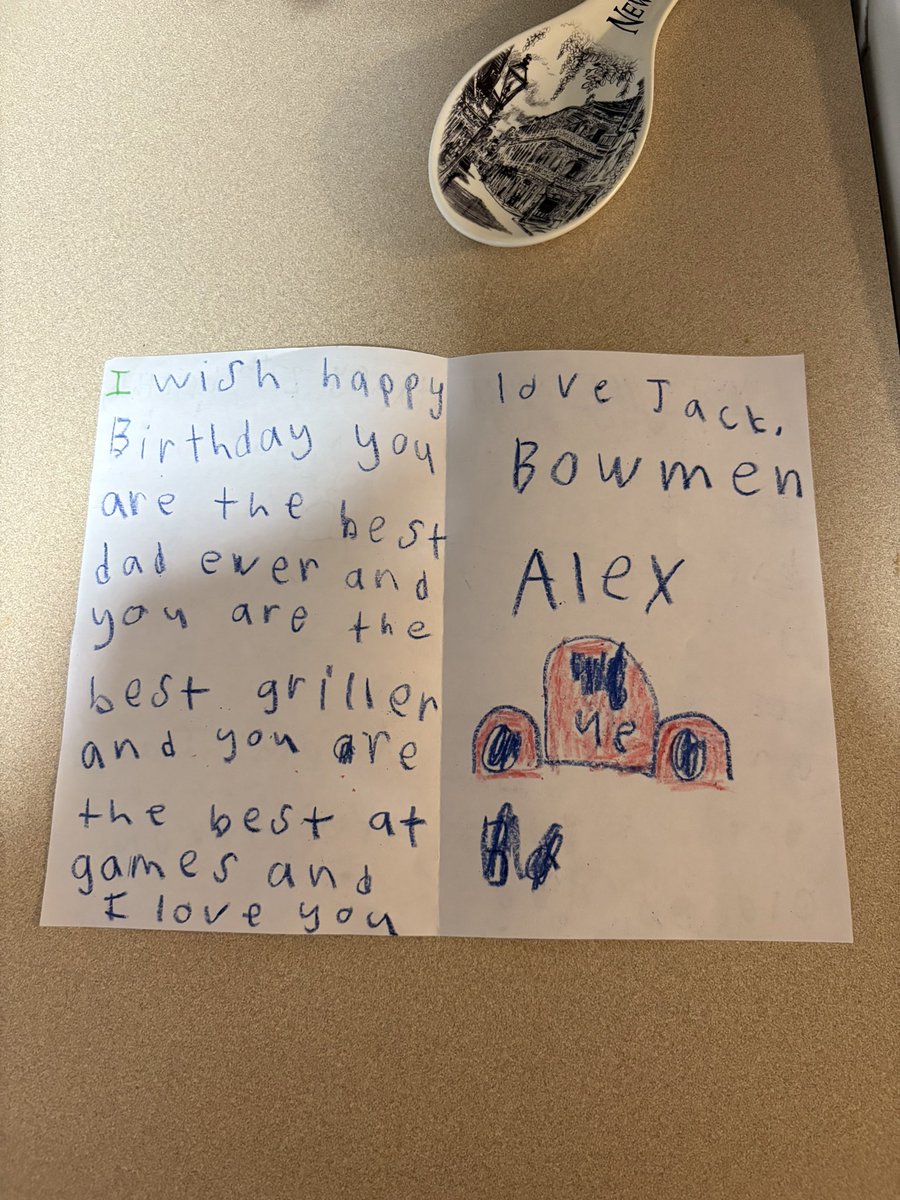 NEW
I wish happy
Birthday you
are the best
dad ever and
you are the
best griller
and you are
the best at
games and
I love you
love Jack.
Bowmen
Alex